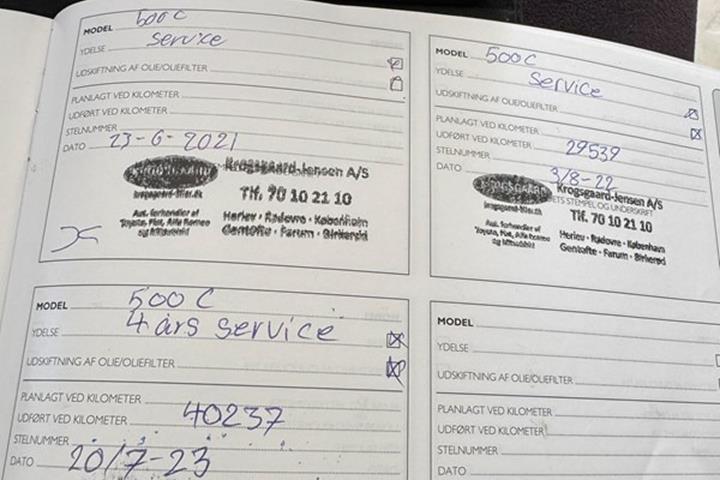 MODEL 500C
YDELSE Service
UDSKIFTNING AF OLIE/OLIEFILTER
PLANLAGT VED KILOMETER
UDFØRT VED KILOMETER
STELNUMMER
DATO 23-6-2021
Krogsgaard-Jensen A/S
krogsgaard-biler.dk
Tlf. 70 10 21 10
Aut. forhandler af
Toyota, Fiat, Alfa Romeo
og Mitsubishi
Herlev · Rødovre · København
Gentofte · Farum · Birkerød
MODEL 500C
YDELSE Service
UDSKIFTNING AF OLIE/OLIEFILTER
PLANLAGT VED KILOMETER
UDFØRT VED KILOMETER 29539
STELNUMMER
DATO 3/8-22
Krogsgaard-Jensen A/S
ETS STEMPEL OG UNDERSKRIFT
krogsgaard-biler.dk
Tlf. 70 10 21 10
Aut. forhandler af
Toyota, Fiat, Alfa Romeo
og Mitsubishi
Herlev · Rødovre · København
Gentofte · Farum · Birkerød
MODEL 500C
YDELSE 4 års service
UDSKIFTNING AF OLIE/OLIEFILTER
PLANLAGT VED KILOMETER
UDFØRT VED KILOMETER 40237
STELNUMMER
DATO 20/7-23
MODEL
YDELSE
UDSKIFTNING AF OLIE/OLIEFILTER
PLANLAGT VED KILOMETER
UDFØRT VED KILOMETER
STELNUMMER
DATO